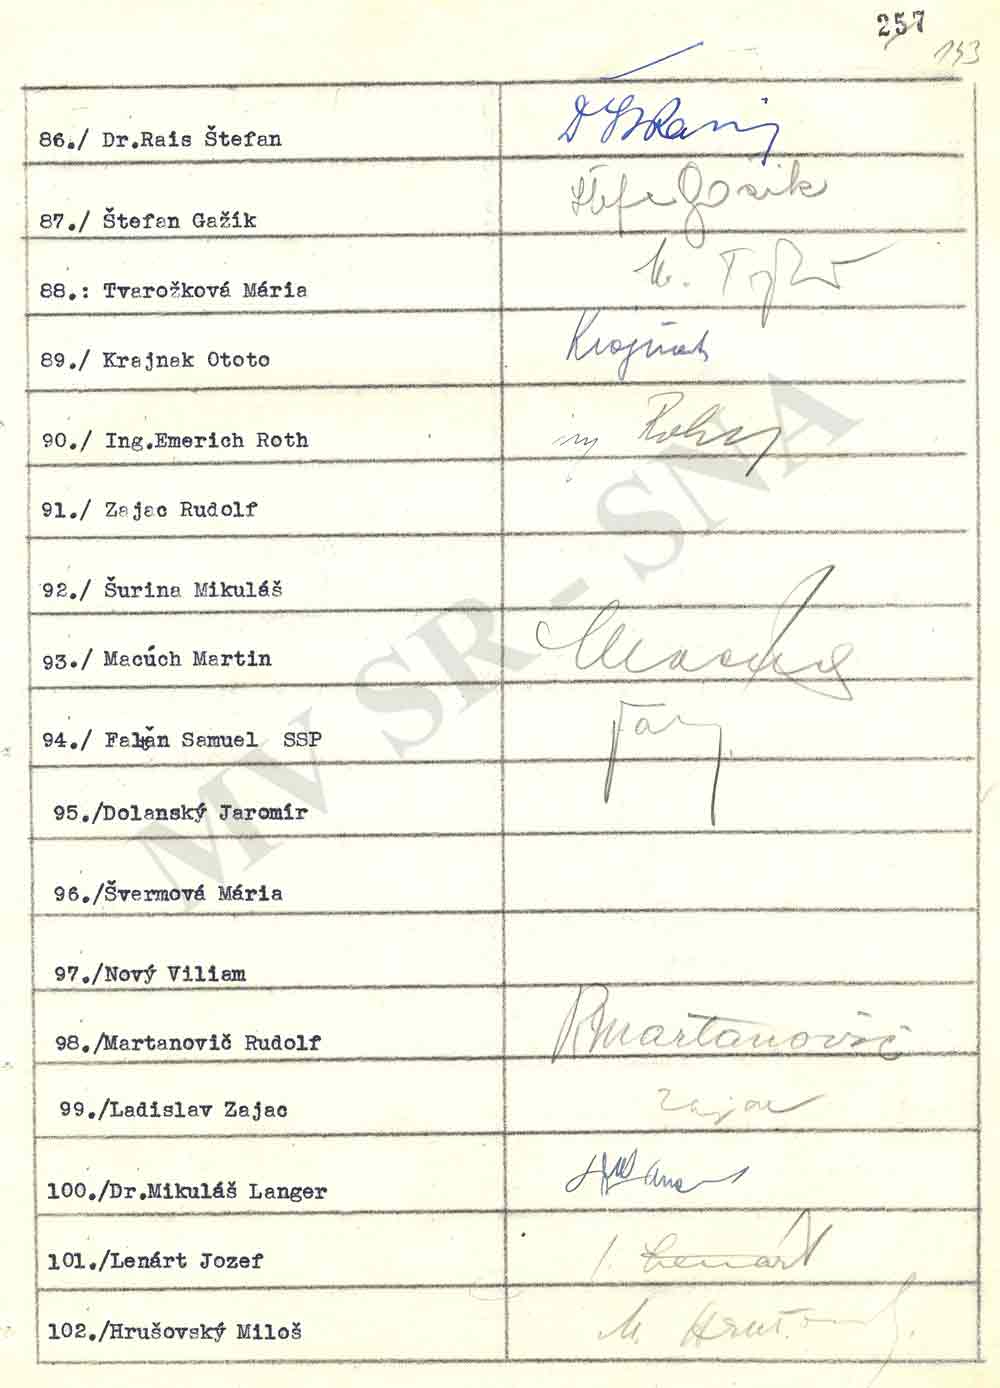 257
143
86./ Dr.Rais Štefan
87./ Štefan Gažík Štefan Gažik
88.: Tvarožková Mária M.
89./ Krajnak Ototo Krajňak
90./ Ing.Emerich Roth ing
91./ Zajac Rudolf
92./ Šurina Mikuláš
93./ Macúch Martin
94./ Falťan Samuel SSP
95./Dolanský Jaromír
96./Švermová Mária
97./Nový Viliam
98./Martanovič Rudolf RMartanovič
99./Ladislav Zajac Zajac
100./Dr.Mikuláš Langer
101./Lenárt Jozef J. Lenárt
102./Hrušovský Miloš M.
MV SR - SNA